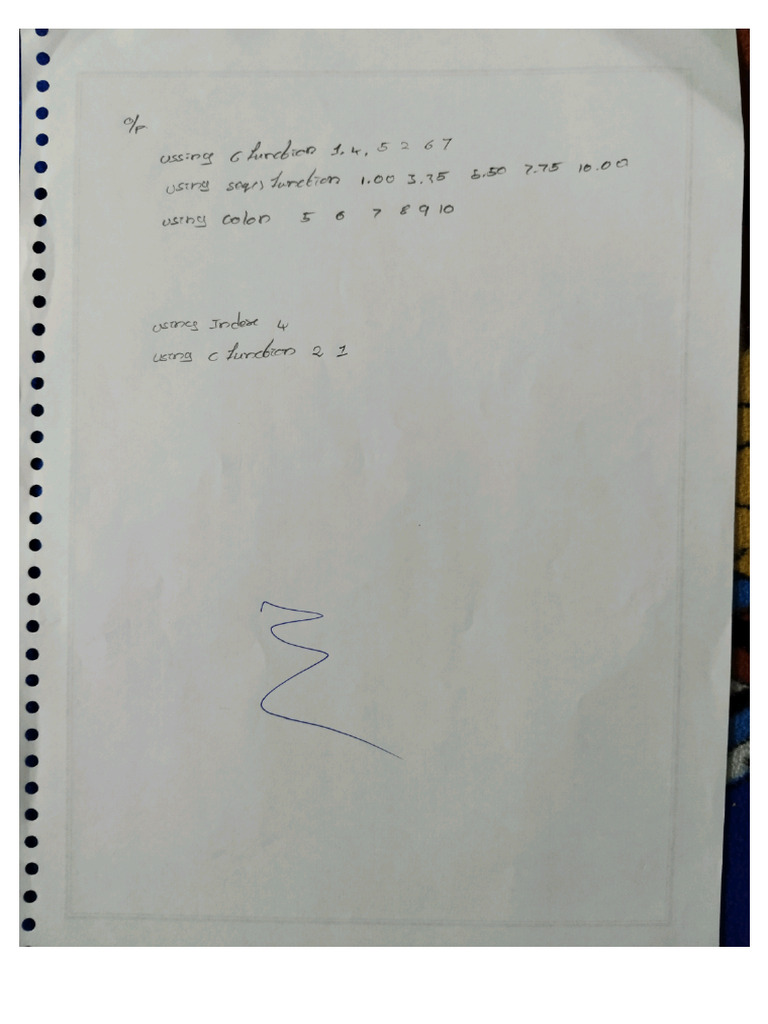 o/p
ussing c function 1, 4, 5 2 6 7
using seq() function 1.00 3.25 5.50 7.75 10.00
using colon 5 6 7 8 9 10
using Index 4
using c function 2 1